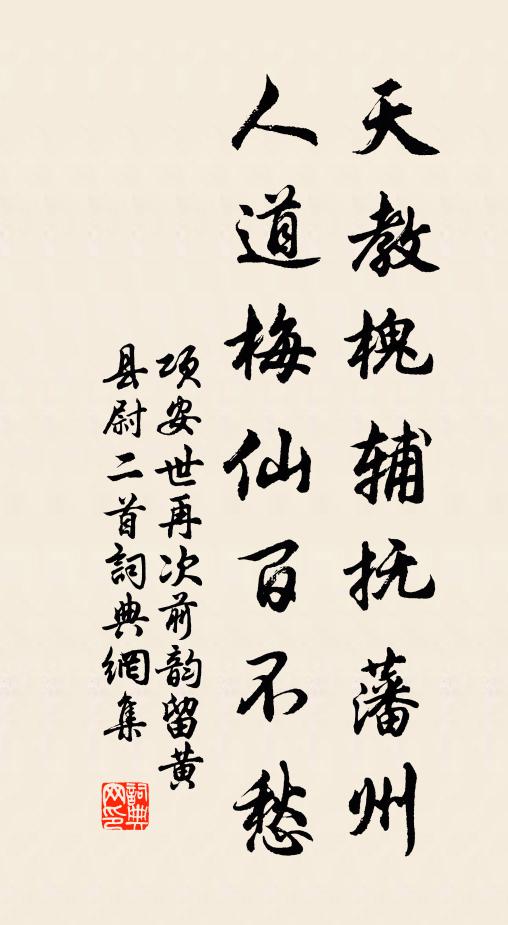 天教槐辅抚藩州
人道梅仙百不愁
项安世再次前韵留黄
县尉二首詞典網集
詞典
网印